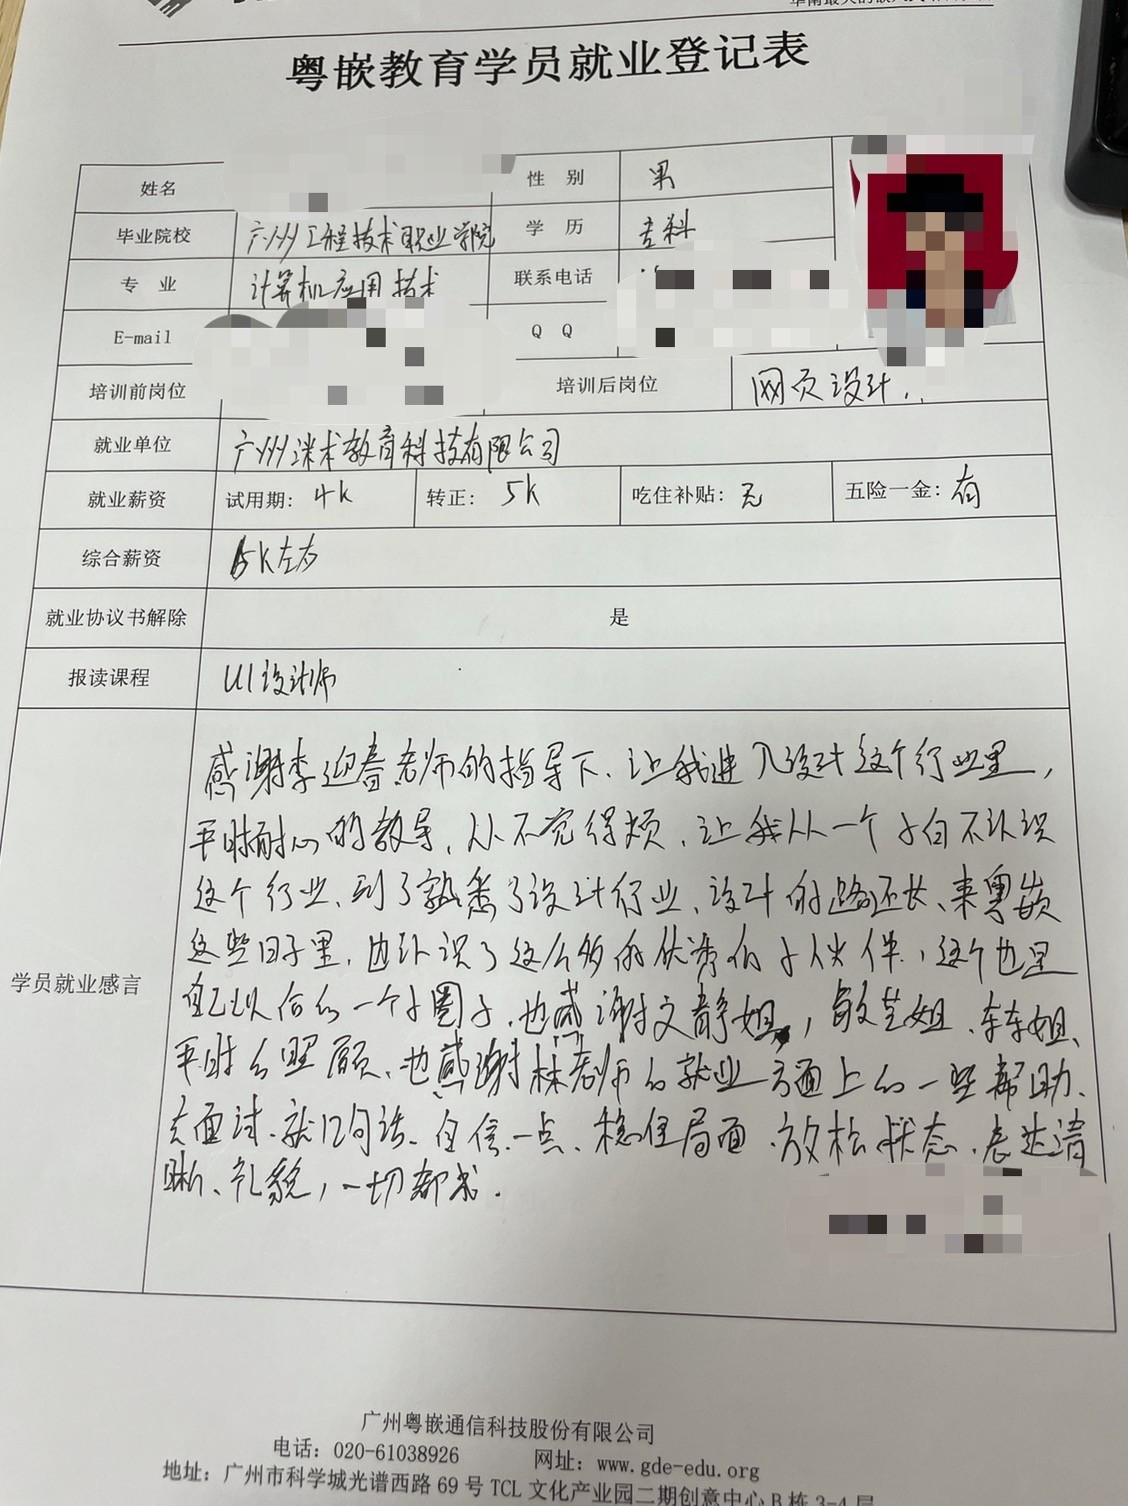 粤嵌教育学员就业登记表
姓名 性 别 男
毕业院校 广州工程技术职业学院 学 历 专科
专 业 计算机应用技术 联系电话
E-mail Q Q
培训前岗位 培训后岗位 网页设计
就业单位 广州洣术教育科技有限公司
就业薪资 试用期: 4k 转正: 5k 吃住补贴: 无 五险一金: 有
综合薪资 5k左右
就业协议书解除 是
报读课程 UI设计师
学员就业感言
感谢李迎春老师的指导下、让我进入设计这个行业里,
平时耐心的教导, 从不觉得烦, 让我从一个小白不认识
这个行业、到了熟悉了设计行业、设计的路还长、来粤嵌
这些日子里, 也认识了这么多的优秀的小伙伴, 这个也是
自己以后的一个小圈子, 也感谢文静姐, 敏芝姐、车车姐、
平时的照顾、也感谢林老师的就业方面上的一些帮助、
去面试、就12句话、自信一点、稳住局面、放松状态、表达清
晰、礼貌, 一切都成.
广州粤嵌通信科技股份有限公司
电话: 020-61038926 网址: www.gde-edu.org
地址: 广州市科学城光谱西路 69 号 TCL 文化产业园二期创意中心 B 栋 3-4 层